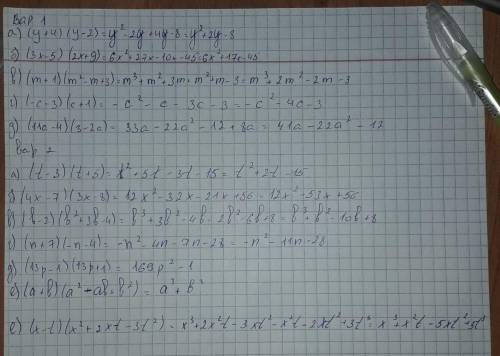 Вар 1
а) (y+4)(y-2)=y²-2y+4y-8=y²+2y-8
б) (3x-5)(2x+9)=6x²+27x-10x-45=6x²+17x-45
в) (m+1)(m²-m+3)=m³+m²+3m+m²+m-3=m³+2m²-2m-3
г) (-c-3)(c+1)=-c²-c-3c-3=-c²-4c-3
д) (11a-4)(3-2a)=33a-22a²-12+8a=41a-22a²-12
Вар 2
а) (t-3)(t+5)=t²+5t-3t-15=t²+2t-15
б) (4x-7)(3x-8)=12x²-32x-21x+56=12x²-53x+56
в) (b-2)(b²+3b-4)=b³+3b²-4b-2b²-6b+8=b³+b²-10b+8
г) (n+7)(-n-4)=-n²-4n-7n-28=-n²-11n-28
д) (13p-1)(13p+1)=169p²-1
е) (a+b)(a²-ab+b²)=a³+b³
е) (x-t)(x²+2xt-3t²)=x³+2x²t-3xt²-x²t-2xt²+3t³=x³+x²t-5xt²+3t³